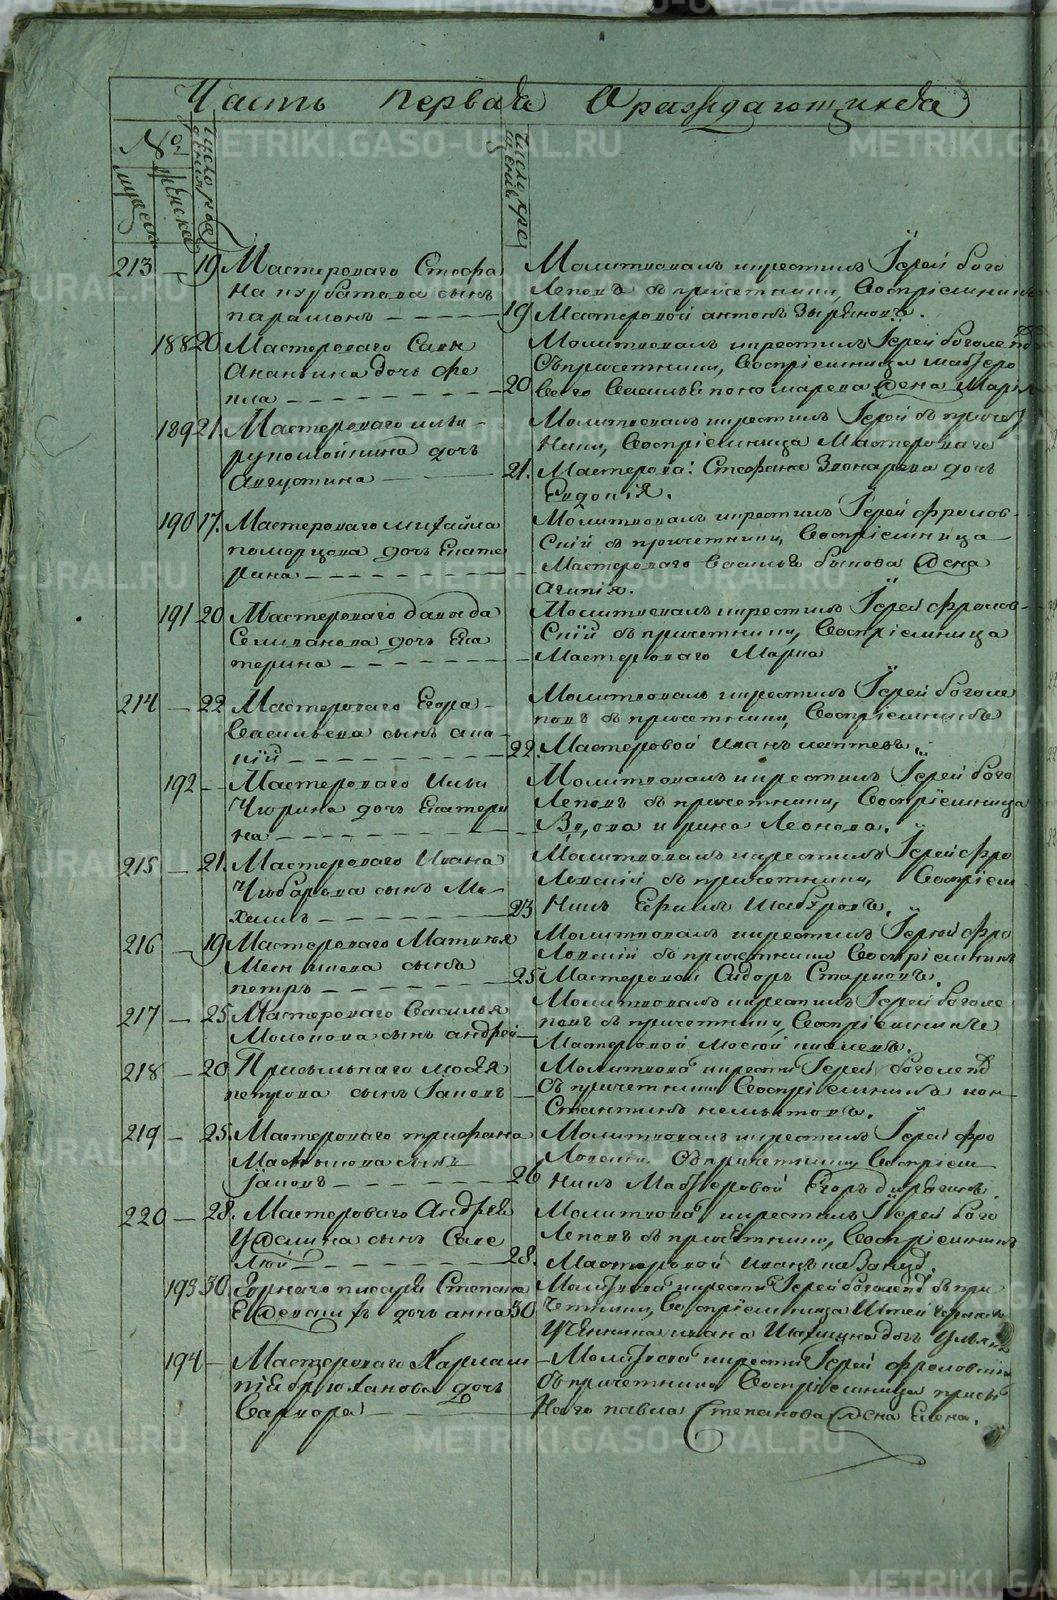 Часть первая О раждающихся
№
мужеск
женска
число рожде
числ кре
213 19 Мастероваго Стефа
на курбатова сынъ
парамонъ
Молитвовалъ икрестилъ Іерей бого
леповъ съ причетники, Воспріемникъ
19 Мастеровой антонъ Зыряновъ.
188 20 Мастероваго Савы
Ананьина дочь фе
кла
Молитвовалъ икрестилъ Іерей боголепо
Съ причетники, Воспріемница мастеро
20 ваго Василья пономарева жена Марья
189 21. Мастероваго ильи
рукомойкина дочь
Августина
Молитвовалъ икрестилъ Іерей съ причет
ники, Воспріемница Мастероваго
21. Мастерова: Стефана Звонарева дочь
Евдокія.
190 17. Мастероваго михайла
поморцова дочь Екате
рина
Молитвовалъ икрестилъ Іерей фролов
скій съ причетники, Воспріемница
Мастероваго Василья быкова жена
агапія.
191 20 Мастероваго давыда
Селиванова дочь Ека
терина
Молитвовалъ икрестилъ Іерей фролов
скій съ причетники, Воспріемница
Мастероваго Марка
214 22 Мастероваго Егора
Васильева сынъ ана
ній
Молитвовалъ икрестилъ Іерей боголе
повъ съ причетники, Воспріемникъ
22. Мастеровой Иванъ лаптевъ.
192 Мастероваго Ильи
Чюрина дочь Екатери
на
Молитвовалъ икрестилъ Іерей бого
леповъ съ причетники, Воспріемница
Вдова ирина Леонова.
215 21. Мастероваго Ивана
Чюбарова сынъ Ми
хаилъ
Молитвовалъ икрестилъ Іерей фро
ловскій съ причетники, Воспріем
23 никъ Ефимъ
216 19 Мастероваго Матвея
Меншикова сынъ
петръ
Молитвовалъ икрестилъ Іерей фро
ловскій съ причетники Воспріемникъ
25 Мастеровой Сидоръ Старковъ.
217 25 Мастероваго Василья
Молокова сынъ андрей
Молитвовалъ икрестилъ Іерей боголе
повъ съ причетники, Воспріемникъ
Мастеровой Мосей киселевъ.
218 20 Присыльнаго мосея
петрова сынъ Іаковъ
Молитвова икрести Іерей боголепо
Съ причетники Воспріемникъ кон
стантинъ
219 25. Мастероваго трифана
сынъ
Іаковъ
Молитвовалъ икрестилъ Іерей фро
ловски съ причетники, Воспріем
26 никъ Мастеровой Егоръ
220 28. Мастероваго Андрея
сынъ Саве
лей
Молитвова икрестилъ Іерей бого
леповъ съ причетники, Воспріемникъ
28. Мастеровой Иванъ
193 30. Горнаго писаря Степана
дочь анна
Молитвова икрести Іерей боголепо съ при
30 четники, Воспріемница
ивана дочь
194 Мастероваго Харлам
пія брюханова дочь
Варвара
Молитвова икрести Іерей фроловскій
съ причетники Воспріемница присы
Наго павла Степанова жена Елена.
METRIKI.GASO-URAL.RU